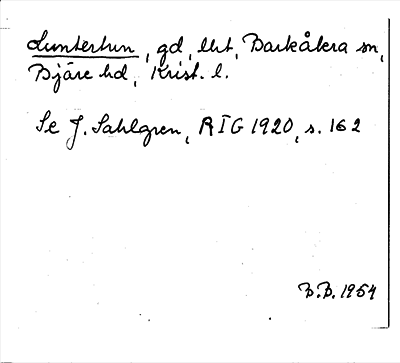 Luntertun, gd, Uht, Barkåkra sn,
Bjäre hd, Krist. l.
Se J. Sahlgren, RIG 1920, s. 162
B.B. 1954